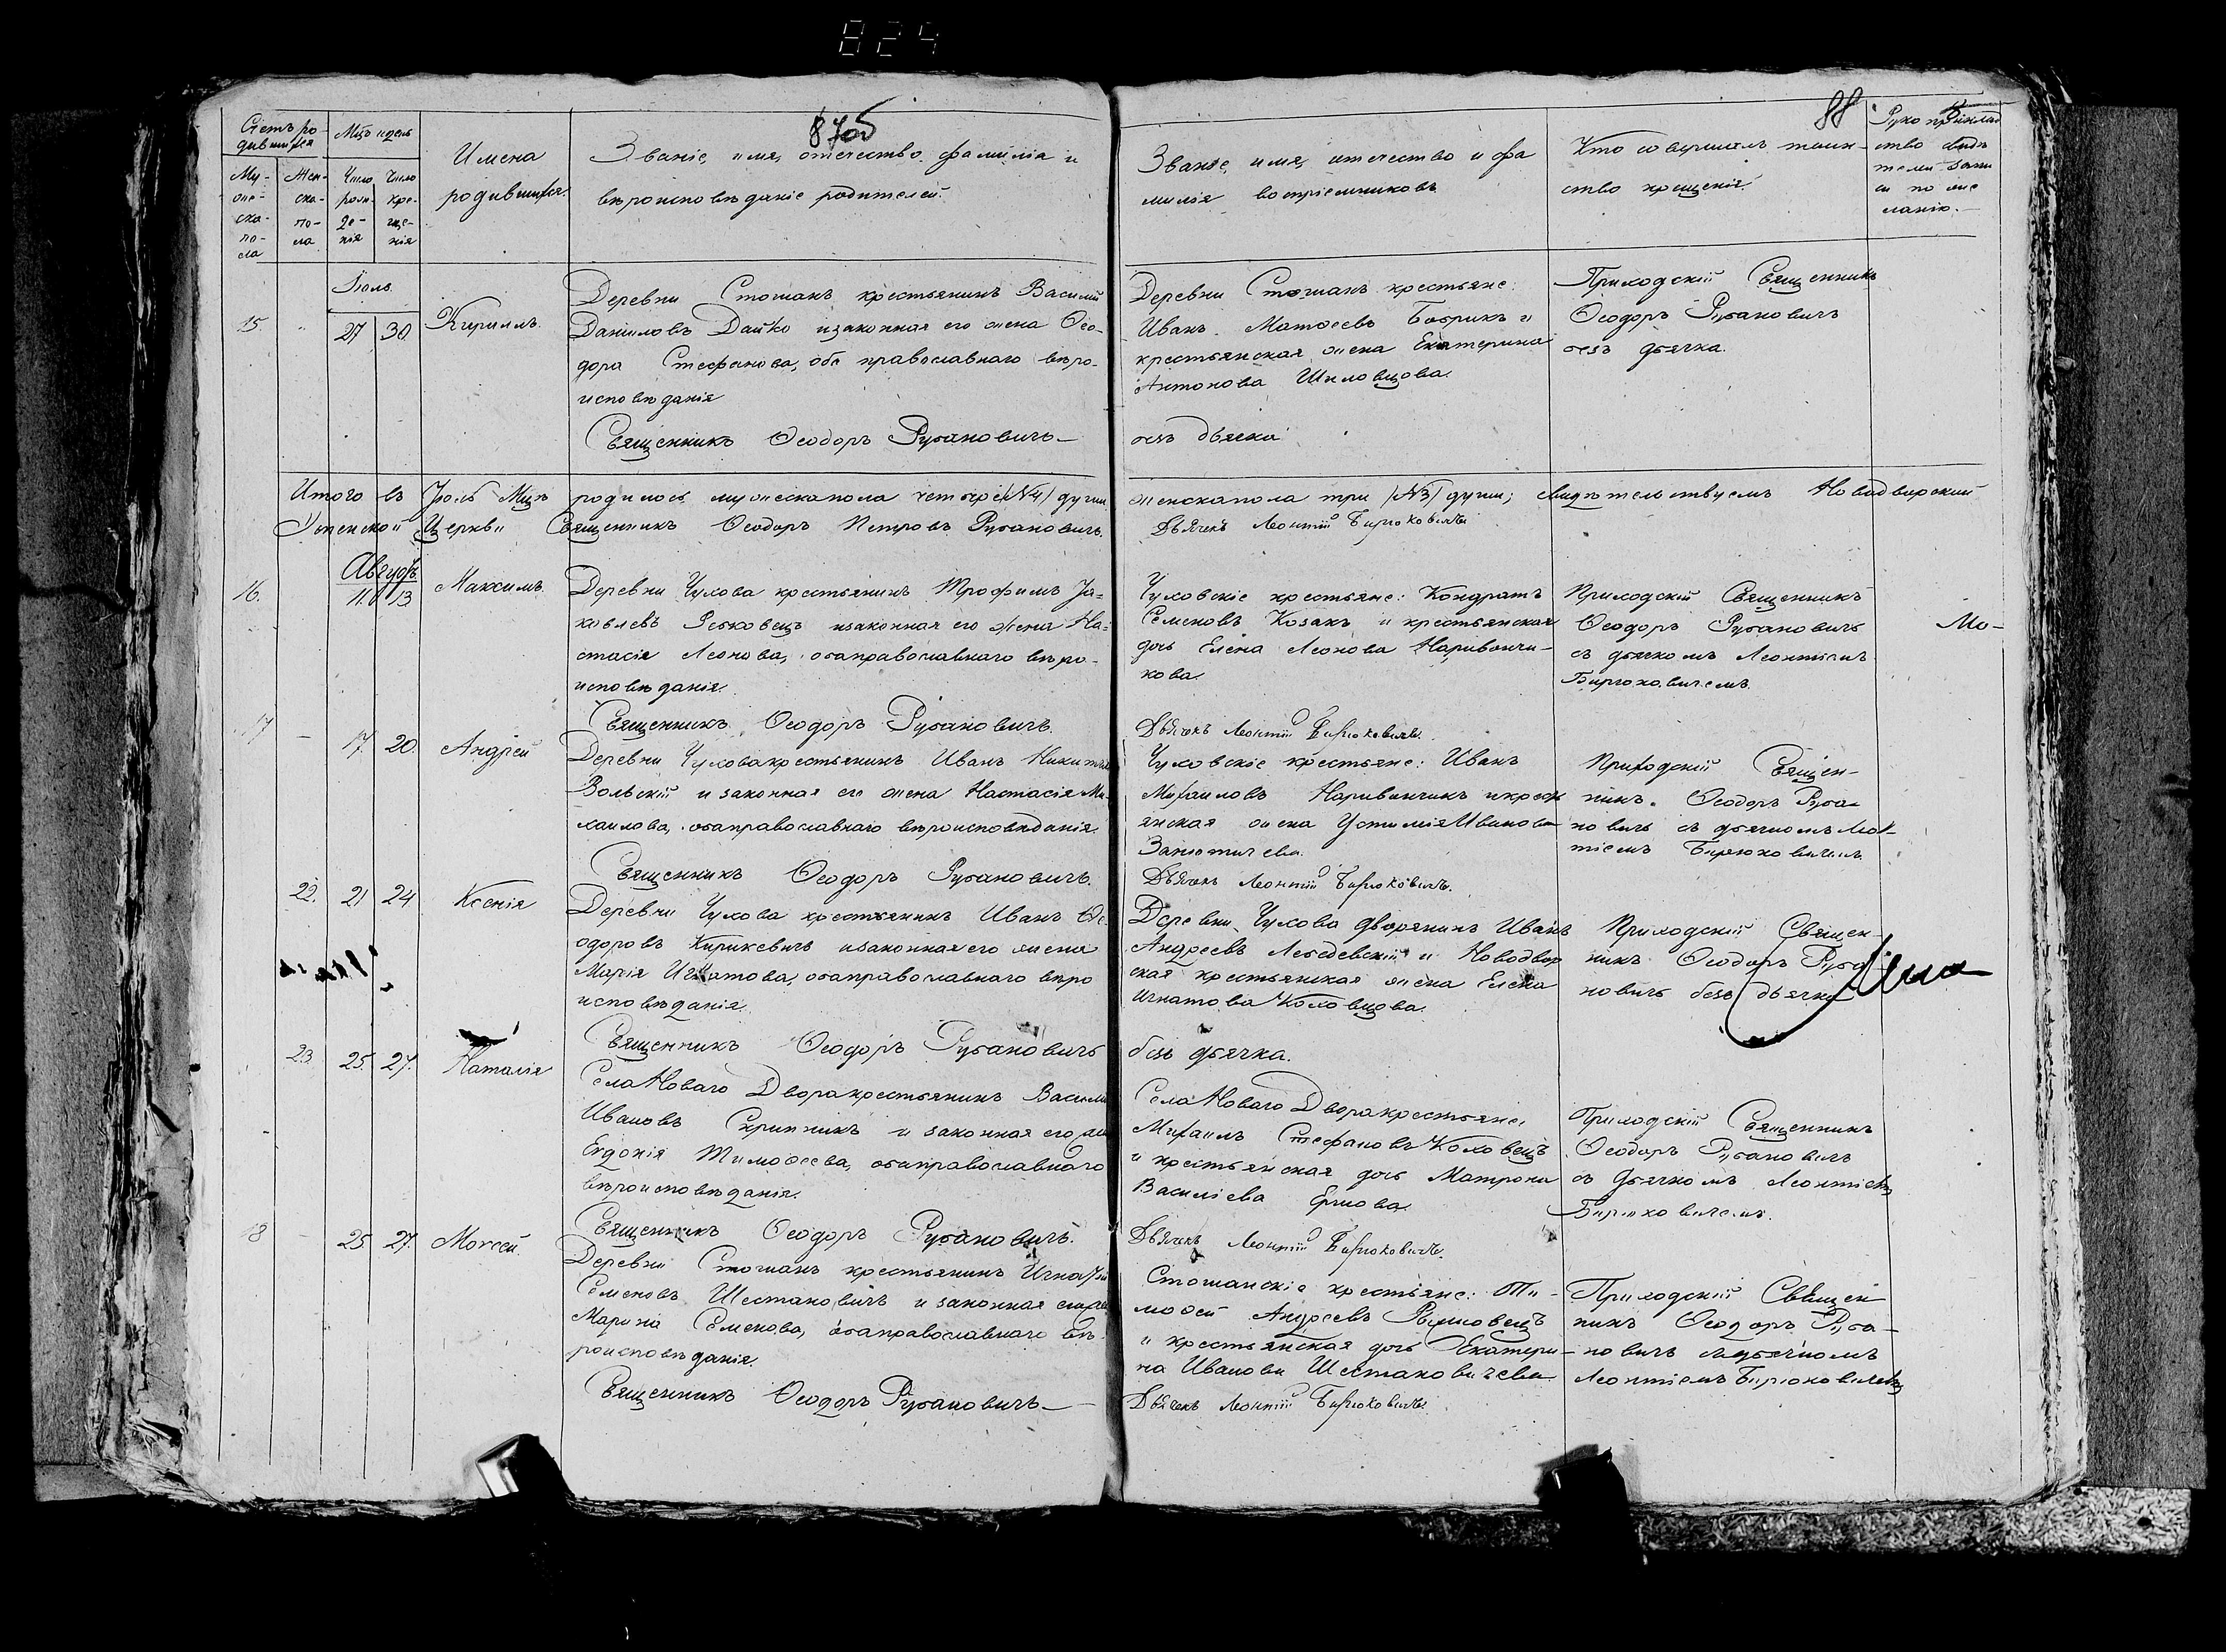 824
87об
88
Счетъ ро-
дившихся
Мцъ и день
Имена
родившихся.
Званіе, имя, отечество, фамилія и
вѣроисповѣданіе родителей.
Му-
же-
ска-
по-
ла
Жен-
ска-
по-
ла
Число
рож-
де-
нія
Число
кре-
ще-
нія
Званіе, имя, отечество и фа
милія воспріемниковъ
Кто совершалъ таин-
ство крещенія.
Рукоприклад
ство свидѣ
телей запи
си по же
ланію.
Іюль
15. " 27 30. Кириллъ.
Деревни Стошанъ крестьянинъ Василій
Даниловъ Дайко и законная его жена Ѳео-
дора Стефанова, оба православнаго вѣро-
исповѣданія
Священникъ Ѳеодоръ Рубановичъ
Деревни Стошанъ крестьяне:
Иванъ Матѳеевъ Бобрикъ и
крестьянская жена Екатерина
Антонова Шиловцова.
безъ дьячка
Приходскій Священникъ
Ѳеодоръ Рубановичъ
безъ дьячка.
Итого въ Іюль Мцъ родилось мужескапола четыре /№4/ души женскапола три /№3/ души; свидѣтельствуемъ Новодворскій
Успенской Церкви Священникъ Ѳеодоръ Петровъ Рубановичъ. Дьячекъ Леонтій Бирюковичъ
Августъ
16. 11. 13 Максимъ.
Деревни Чухова крестьянинъ Трофимъ Іа-
ковлевъ Ребковецъ и законная его жена На-
стасія Леонова, оба православнаго вѣро-
исповѣданія.
Священникъ Ѳеодоръ Рубановичъ.
Чуховскіе крестьяне: Кондратъ
Семеновъ Козакъ и крестьянская
дочь Елена Леонова Наривончи-
кова.
Дьячекъ Леонтій Бирюковичъ.
Приходскій Священникъ
Ѳеодоръ Рубановичъ
съ дьячкомъ Леонтіемъ
Бирюковичемъ.
Мо-
17 – 17. 20. Андрей
Деревни Чухова крестьянинъ Иванъ Никитинъ
Вольскій и законная его жена Настасія Ми-
хаилова, оба православнаго вѣроисповѣданія.
Священникъ Ѳеодоръ Рубановичъ.
Чуховскіе крестьяне: Иванъ
Михаиловъ Наривончикъ и крест
янская жена Устимія Иванова
Дьячекъ Леонтій Бирюковичъ.
Приходскій Священ-
никъ Ѳеодоръ Руба-
новичъ съ дьячкомъ Леон-
тіемъ Бирюковичемъ.
22. 21 24 Ксенія
Деревни Чухова крестьянинъ Иванъ Ѳе-
одоровъ Кирикевичъ и законная его жена
Марія Игнатова, оба православнаго вѣро
исповѣданія.
Священникъ Ѳеодоръ Рубановичъ
Деревни Чухова дворянинъ Иванъ
Андреевъ Лебедевскій и Новодвор
ская крестьянская жена Елена
Игнатова Коловцова.
безъ дьячка.
Приходскій Священ-
никъ Ѳеодоръ Руба-
новичъ безъ дьячка
23. 25. 27. Наталія
Села Новаго Двора крестьянинъ Василій
Ивановъ Скрипникъ и законная его жена
Евдокія Тимоѳеева, оба православнаго
вѣроисповѣданія.
Священникъ Ѳеодоръ Рубановичъ.
Села Новаго Двора крестьяне,
Михаилъ Стефановъ Коловецъ
и крестьянская дочь Матрона
Василіева Ершова.
Дьячекъ Леонтій Бирюковичъ.
Приходскій Священникъ
Ѳеодоръ Рубановичъ
съ дьячкомъ Леонтіемъ
Бирюковичемъ.
18 – 25 27. Моѵсей.
Деревни Стошанъ крестьянинъ Игнатій
Семеновъ Шестаковичъ и законная его жена
Марина Семенова, оба православнаго вѣ-
роисповѣданія.
Священникъ Ѳеодоръ Рубановичъ
Стошанскіе крестьяне: Ти-
моѳей Андреевъ
и крестьянская дочь Екатери-
на Иванова Шестаковичева.
Дьячекъ Леонтій Бирюковичъ.
Приходскій Священ
никъ Ѳеодоръ Руба-
новичъ съ дьячкомъ
Леонтіемъ Бирюковичемъ